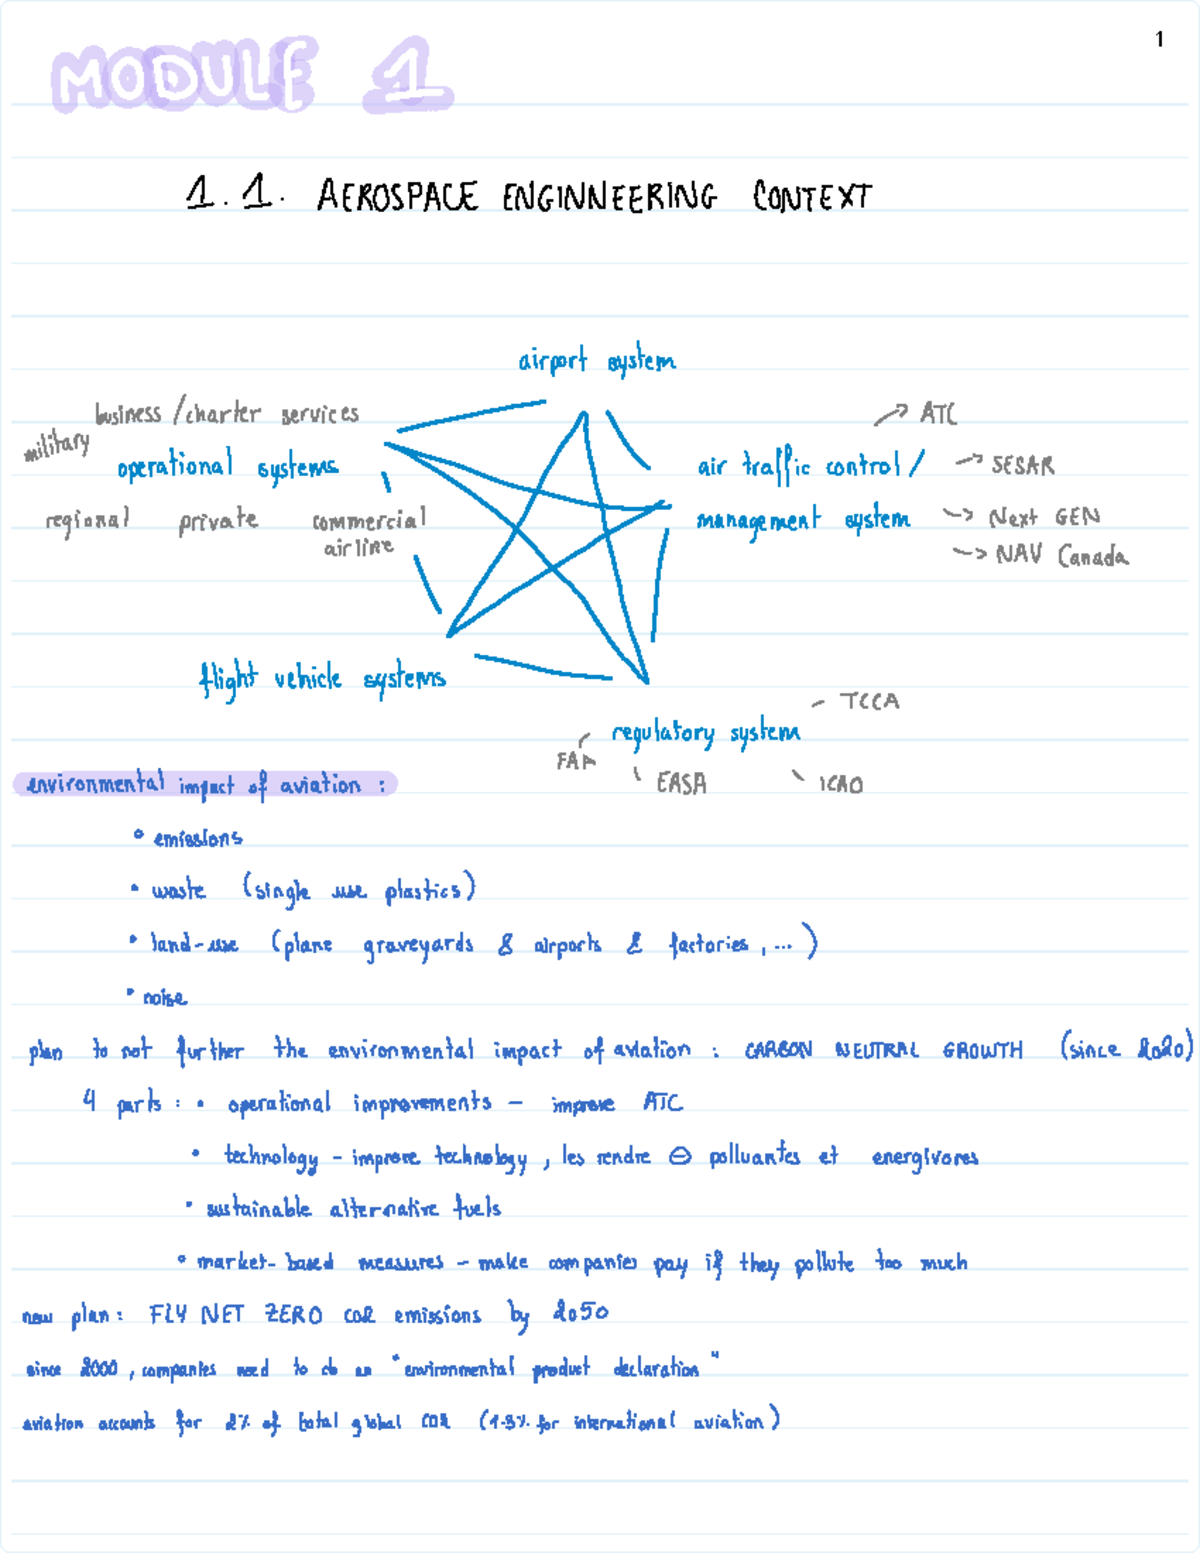 1
MODULE 1
1.1. AEROSPACE ENGINNEERING CONTEXT
airport system
business /charter services
military
operational systems
regional private commercial
airline
air traffic control /
management system
→ ATC
→ SESAR
→ Next GEN
→ NAV Canada
flight vehicle systems
regulatory system
TCCA
FAA
EASA
ICAO
environmental impact of aviation :
• emissions
• waste (single use plastics)
• land-use (plane graveyards & airports & factories , ... )
• noise
plan to not further the environmental impact of aviation : CARBON NEUTRAL GROWTH (since 2020)
4 parts : • operational improvements – improve ATC
• technology – improve technology , les rendre ⊖ polluantes et energivores
• sustainable alternative fuels
• market-based measures – make companies pay if they pollute too much
new plan : FLY NET ZERO CO2 emissions by 2050
since 2000 , companies need to do an "environmental product declaration"
aviation accounts for 2% of total global CO2 (1.3% for international aviation)